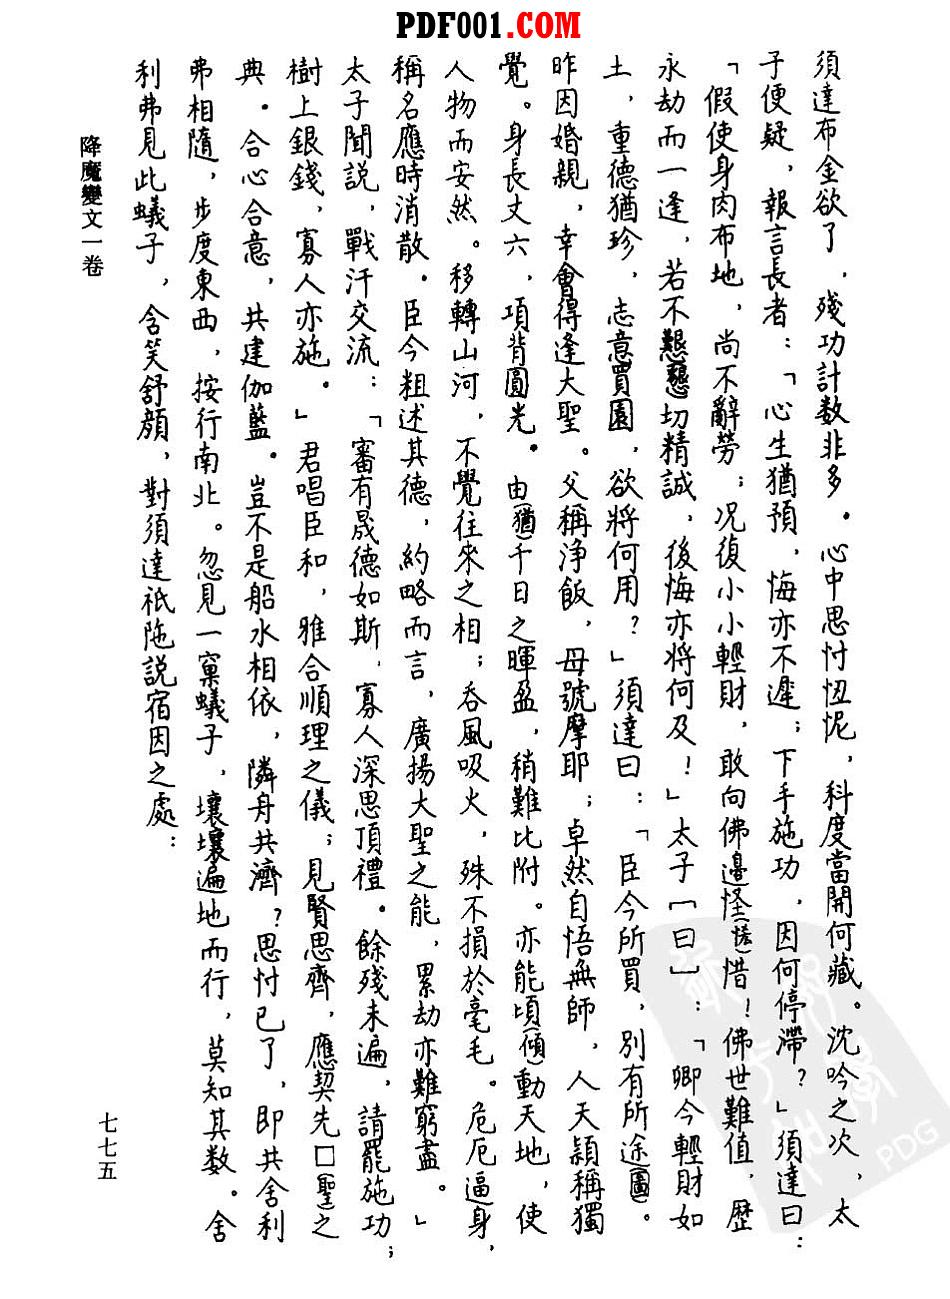 PDF001.COM
須達布金欲了，殘功計數非多。心中思忖忸怩，科度當開何藏。沈吟之次，太
子便疑，報言長者：「心生猶預，悔亦不遲；下手施功，因何停滯？」須達曰：
「假使身肉布地，尚不辭勞；況復小小輕財，敢向佛邊怪（恡）惜！佛世難值，歷
永劫而一逢，若不懇懇切精誠，後悔亦將何及！」太子［曰］：「卿今輕財如
土，重德猶珍，志意買園，欲將何用？」須達曰：「臣今所買，別有所途（圖）。
昨因婚親，幸會得逢大聖。父稱淨飯，母號摩耶；卓然自悟無師，人天穎稱獨
覺。身長丈六，項背圓光。由（猶）千日之暉盈，稍難比附。亦能頃（傾）動天地，使
人物而安然。移轉山河，不覺往來之相；吞風吸火，殊不損於毫毛。危厄逼身，
稱名應時消散。臣今粗述其德，約略而言，廣揚大聖之能，累劫亦難窮盡。」
太子聞說，戰汗交流：「審有晟德如斯，寡人深思頂禮。餘殘未遍，請罷施功；
樹上銀錢，寡人亦施。」君唱臣和，雅合順理之儀；見賢思齊，應契先□（聖）之
典。合心合意，共建伽藍。豈不是船水相依，隣舟共濟？思忖已了，即共舍利
弗相隨，步度東西，按行南北。忽見一窠蟻子，壤壤遍地而行，莫知其数。舍
利弗見此蟻子，含笑舒顏，對須達祇陁說宿因之處：
降魔變文一卷
七七五
PDG